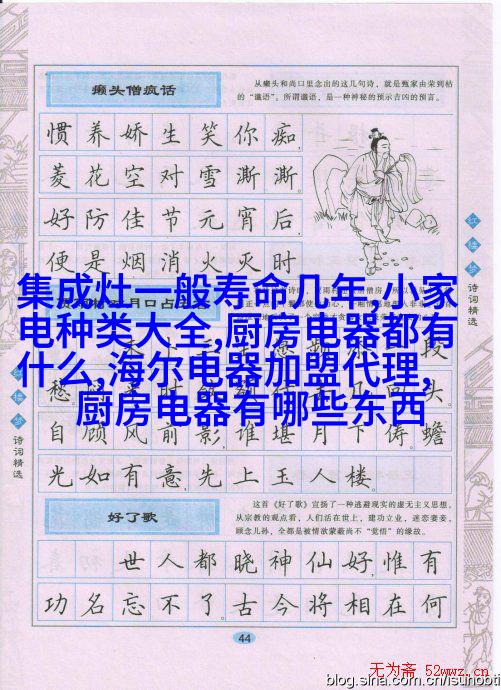 癞头僧疯话
从癞头和尚口里念出的这几句诗，就是甄家由荣到枯
的“谶语”。所谓谶语，是一种神秘的预示吉凶的预言。
惯养娇生笑你痴，
菱花空对雪澌澌。
好防佳节元宵后，
便是烟消火灭时
集成灶一般寿命几年,小家
电种类大全,厨房电器都有
什么,海尔电器加盟代理,
厨房电器有哪些东西
自顾风前影，谁堪月下俦。蟾
光如有意，先上玉人楼。
好了歌
这首《好了歌》宣扬了一种逃避现实的虚无主义思想。
从宗教的观点看，人们活在世上，建功立业，迷恋妻妾，
顾念儿孙，全都是被情欲蒙蔽尚不“觉悟”的缘故。
世人都晓神仙好，惟有
功名忘不了。古今将相在何
44
红楼梦
诗词精选
红楼梦
诗词精选
无为斋 52wwz.cn
blog.sina.com.cn/isunobti